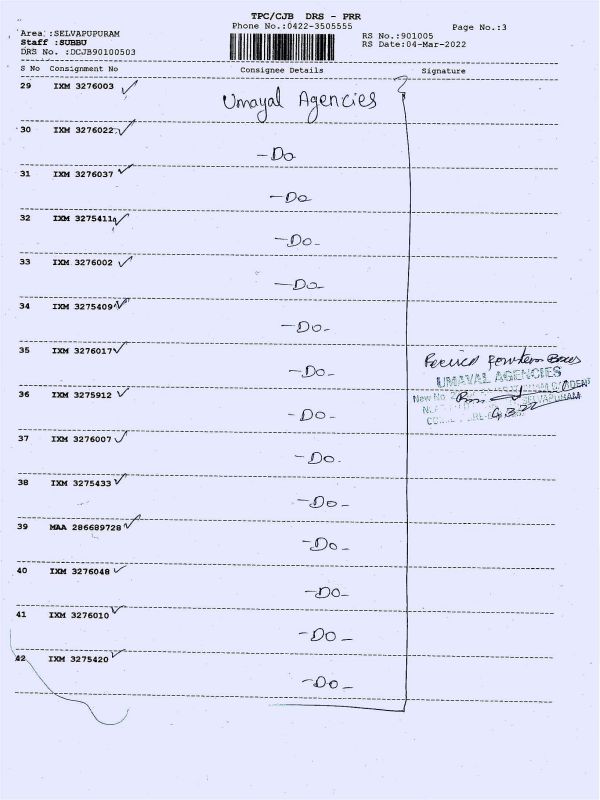 TPC/CJB DRS - PRR
Phone No.:0422-3505555
Page No.:3
Area :SELVAPUPURAM
Staff :SUBBU
DRS No. :DCJB90100503
RS No.:901005
RS Date:04-Mar-2022
S No Consignment No Consignee Details Signature
29 IXM 3276003 Umayal Agencies
30 IXM 3276022
-Do
31 IXM 3276037
-Do
32 IXM 3275411
-Do-
33 IXM 3276002
-Do-
34 IXM 3275409
-Do-
35 IXM 3276017
-Do-
Received fourteen Boxes
UMAYAL AGENCIES
New No.
SELVAPURAM
36 IXM 3275912
-Do-
37 IXM 3276007
-Do-
38 IXM 3275433
-Do-
39 MAA 286689728
-Do-
40 IXM 3276048
-Do-
41 IXM 3276010
-Do-
42 IXM 3275420
-Do-